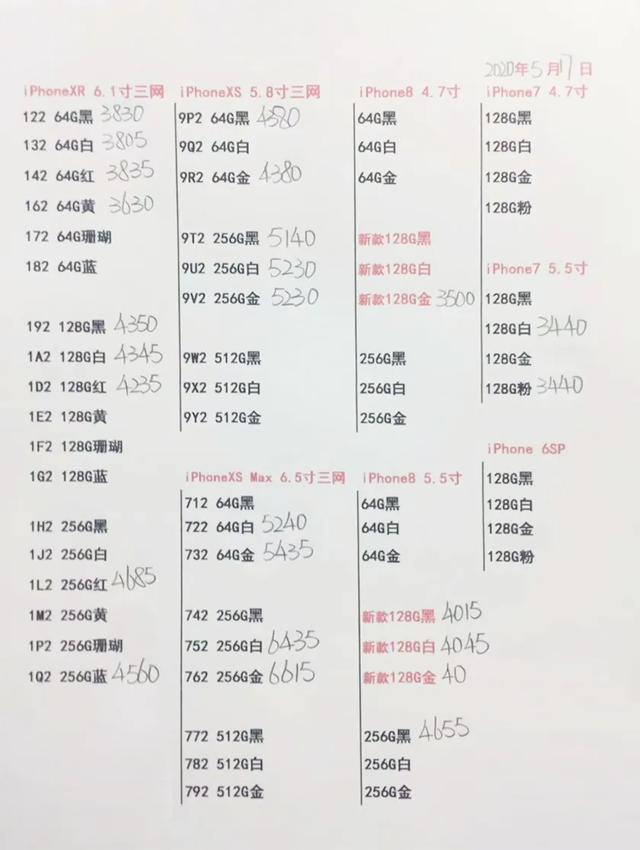 2020年5月17日
iPhoneXR 6.1寸三网
122 64G黑 3830
132 64G白 3805
142 64G红 3835
162 64G黄 3630
172 64G珊瑚
182 64G蓝
192 128G黑 4350
1A2 128G白 4345
1D2 128G红 4235
1E2 128G黄
1F2 128G珊瑚
1G2 128G蓝
1H2 256G黑
1J2 256G白
1L2 256G红 4685
1M2 256G黄
1P2 256G珊瑚
1Q2 256G蓝 4560
iPhoneXS 5.8寸三网
9P2 64G黑 4380
9Q2 64G白
9R2 64G金 4380
9T2 256G黑 5140
9U2 256G白 5230
9V2 256G金 5230
9W2 512G黑
9X2 512G白
9Y2 512G金
iPhoneXS Max 6.5寸三网
712 64G黑
722 64G白 5240
732 64G金 5435
742 256G黑
752 256G白 6435
762 256G金 6615
772 512G黑
782 512G白
792 512G金
iPhone8 4.7寸
64G黑
64G白
64G金
新款128G黑
新款128G白
新款128G金 3500
256G黑
256G白
256G金
iPhone8 5.5寸
64G黑
64G白
64G金
新款128G黑 4015
新款128G白 4045
新款128G金 40
256G黑 4655
256G白
256G金
iPhone7 4.7寸
128G黑
128G白
128G金
128G粉
iPhone7 5.5寸
128G黑
128G白 3440
128G金
128G粉 3440
iPhone 6SP
128G黑
128G白
128G金
128G粉